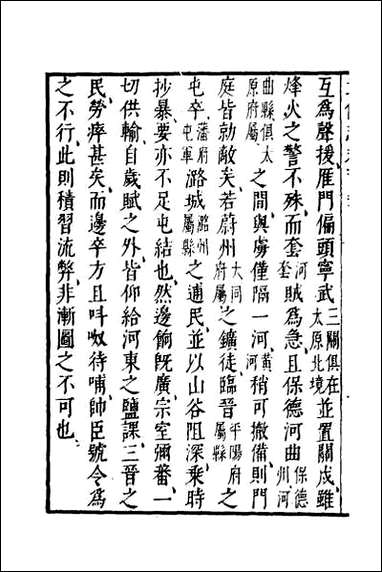 互為聲援、雁門偏頭寧武三關俱在太原北境並置關戍、雖
烽火之警不殊、而套河套賊為急、且保德河曲保德州河
曲縣俱太原府屬之間、與虜僅隔一河、黃河稍可撤備、則門
庭皆勍敵矣、若蔚州大同府屬之鑛徒、臨晉平陽府屬縣之
屯卒、瀋府屯軍潞城潞州屬縣之逋民、並以山谷阻深、乘時
抄暴、要亦不足屯結也、然邊餉既廣、宗室彌蕃、一
切供輸、自歲賦之外、皆仰給河東之鹽課、三晉之
民、勞瘁甚矣、而邊卒方且呌呶待哺、帥臣號令為
之不行、此則積習流弊、非漸圖之不可也、